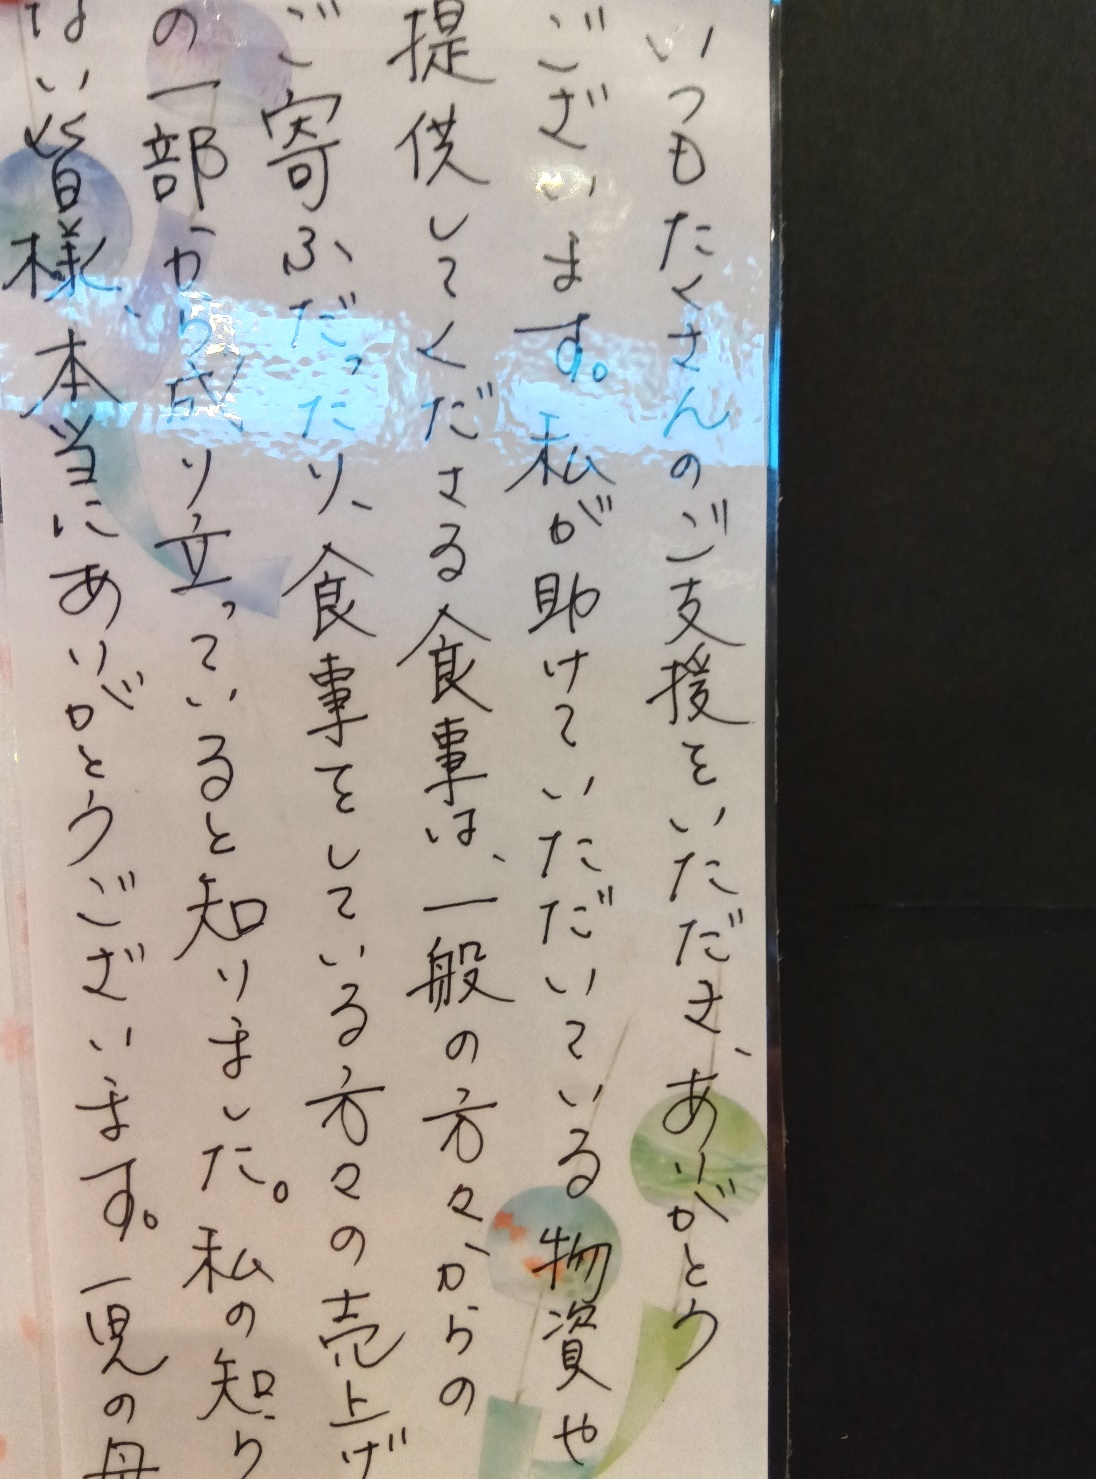 いつもたくさんのご支援をいただき、ありがとう
ございます。私が助けていただいている物資や
提供してくださる食事は、一般の方々からの
ご寄ふだったり、食事をしている方々の売上げ
の一部から成り立っていると知りました。私の知ら
ない皆様、本当にありがとうございます。一児の母